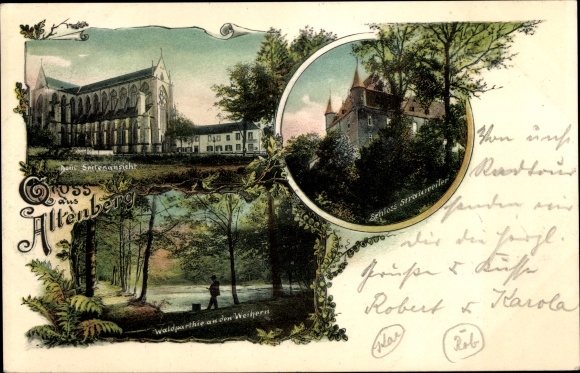 Dom Seitenansicht
Schloss Strauweiler
Gruss
aus
Altenberg
Waldparthie an den Weihern
Von uns.
Radtour
senden wir
Dir die herzl.
Grüße & Küsse
Robert & Karola
Kar
Rob